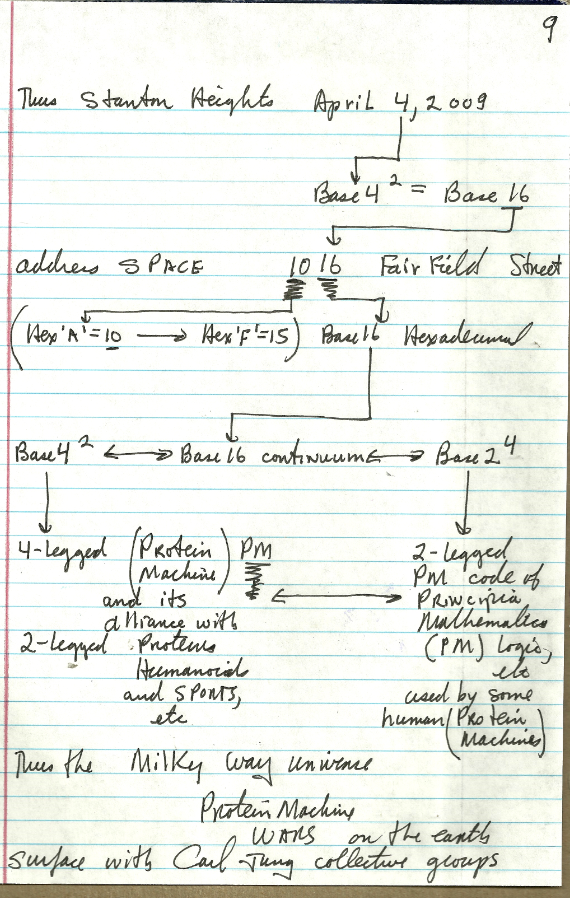 9
Thus Stanton Heights April 4, 2009
Base 4² = Base 16
address SPACE 10 16 Fairfield Street
(Hex 'A' = 10 → Hex 'F' = 15) Base 16 Hexadecimal
Base 4² ↔ Base 16 continuum ↔ Base 2⁴
4-legged (Protein Machine) PM
and its
alliance with
2-legged Proteins
Humanoids
and SPORTS,
etc
2-legged
PM code of
Principia
Mathematica
(PM) Logic,
etc
used by some
human (Protein
Machines)
Thus the Milky Way universe
Protein Machine
WARS on the earth
surface with Carl Jung collective groups